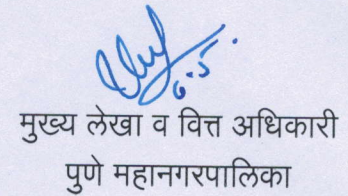 मुख्य लेखा व वित्त अधिकारी
पुणे महानगरपालिका